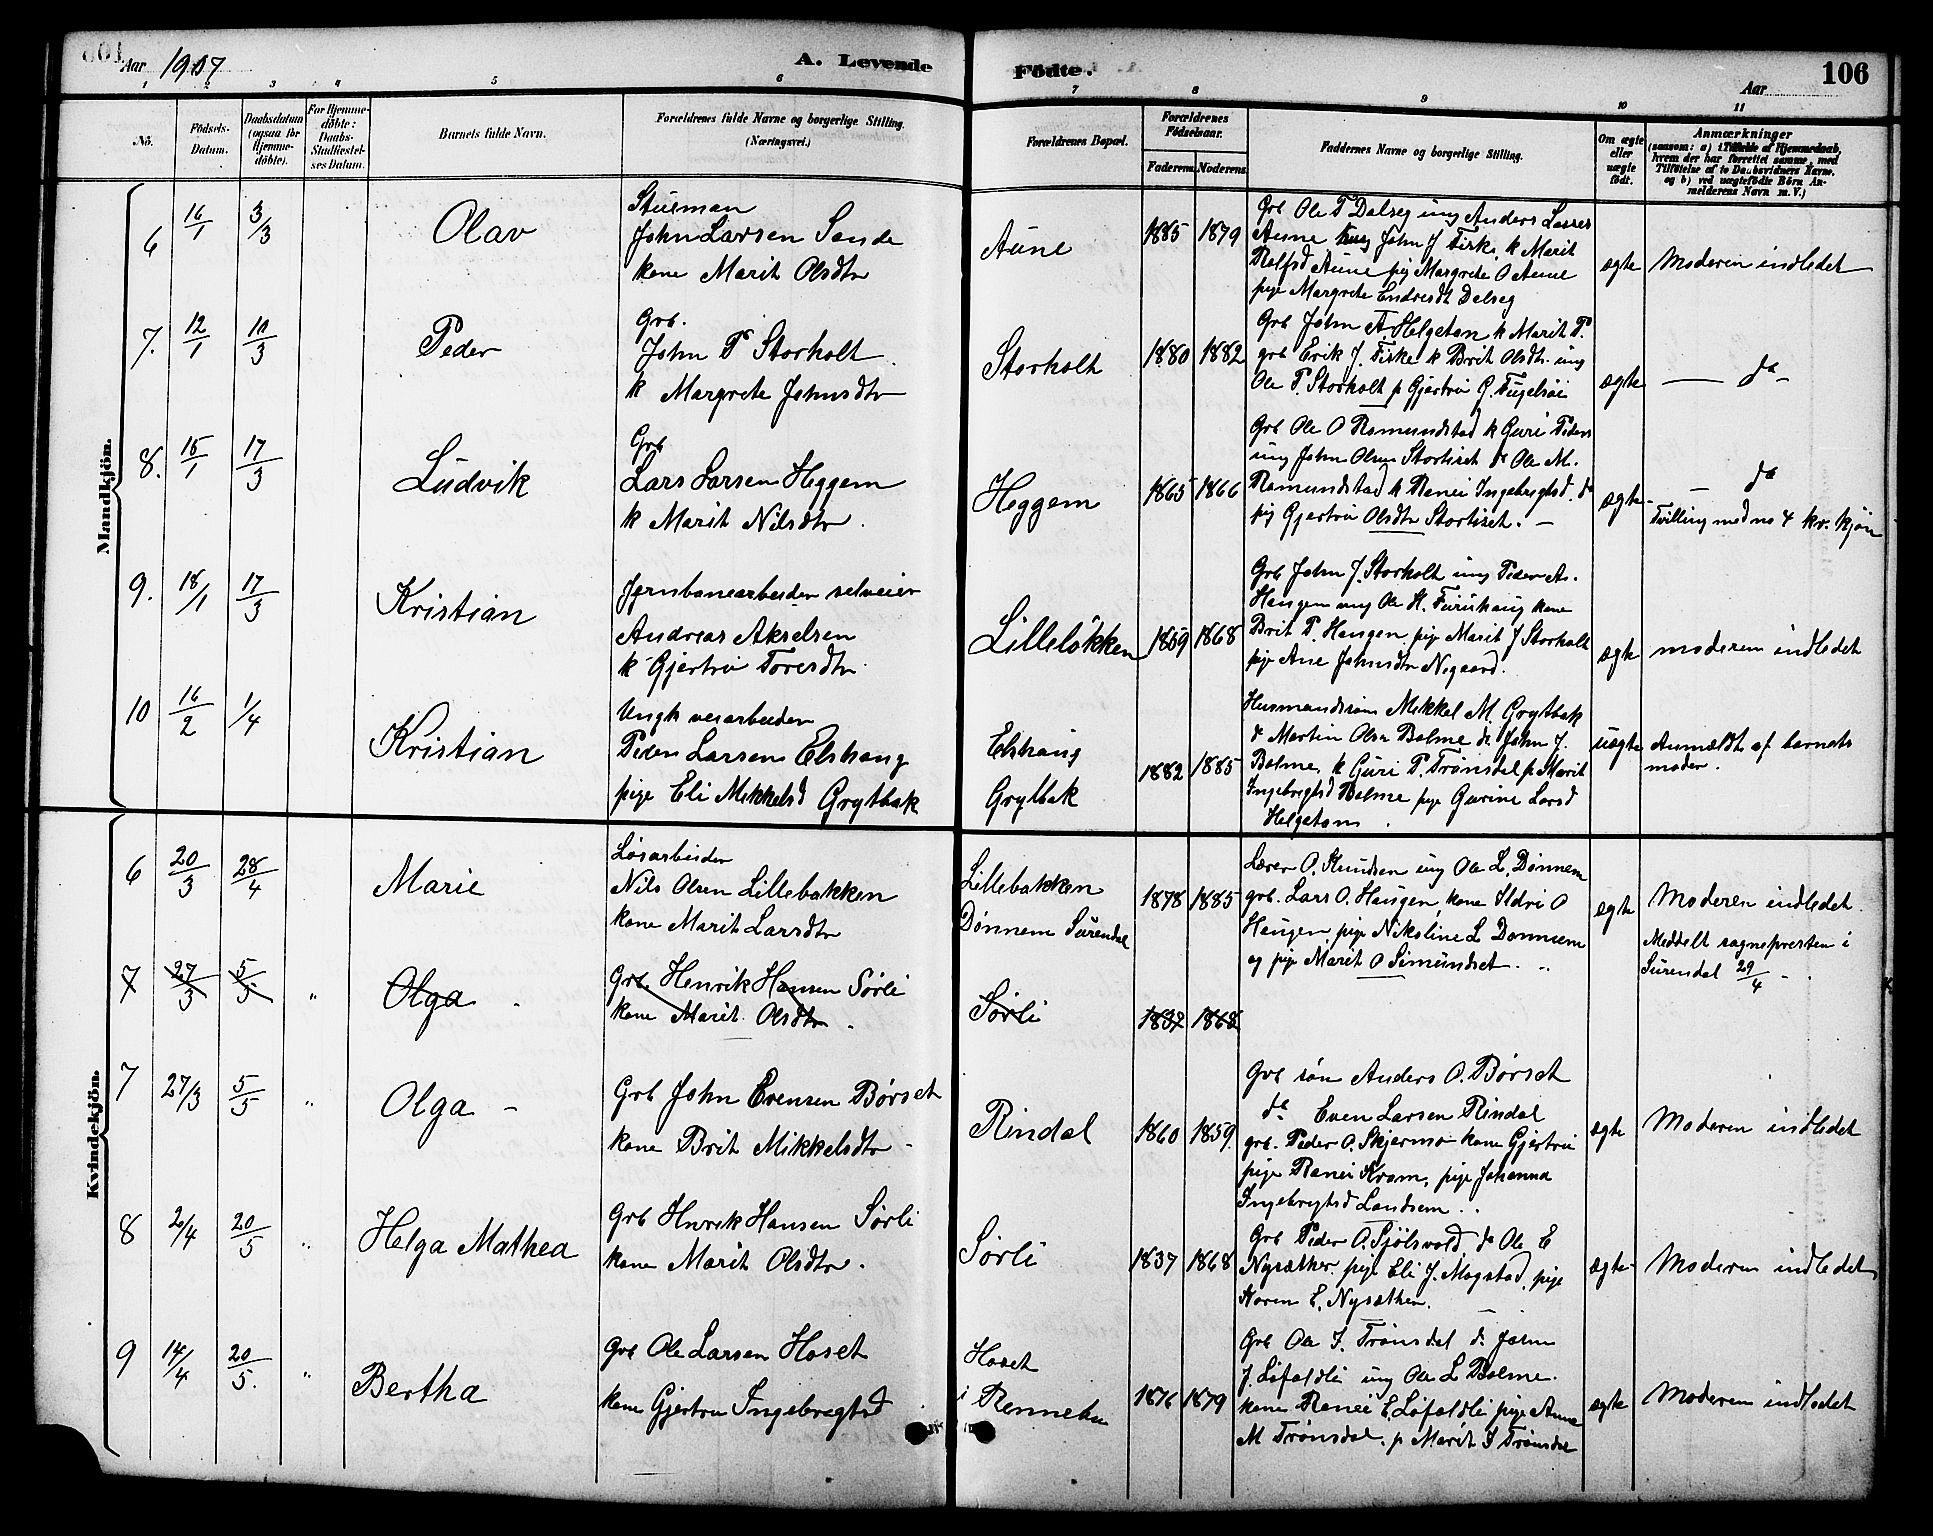 Aar 1907
A. Levende
Födte.
Aar
106
1 2 3 4 5 6 7 8 9 10 11
No.
Födsels-
Datum.
Daabsdatum
(ogsaa for
Hjemme-
döbte).
For Hjemme-
döbte:
Daabs-
Stadfæstel-
ses Datum.
Barnets fulde Navn.
Forældrenes fulde Navne og borgerlige Stilling.
(Næringsvei.)
Forældrenes Bopæl.
Forældrenes
Födselsaar.
Faderens. Moderens.
Faddernes Navne og borgerlige Stilling.
Om ægte
eller
uægte
födt.
Anmærkninger
(saasom: a) i Tilfælde af Hjemmedaab,
hvem der har forrettet samme, med
Tilföielse af to Daabsvidners Navne,
og b) ved uægtefödte Börn An-
melderens Navn m. V.)
Mandkjön.
6 16/1 3/3 Olav
John Larsen Sande
kone Marit Olsdtr
Aune 1885 1879
Grb Ole P Dalseg ung Anders Larses
Aune John J Fiske, k Marit
Aune pig Margrete O Aune
pige Margrete Endresdt Dalseg
ægte Moderen indledet
7. 12/1 10/3 Peder
Grb.
John P Storholt
k Margrete Johnsdtr
Storholt 1880 1882
Grb John A Helgetun k Marit P.
grb Erik J. Fiske k Brit Olsdtr. ung
Ole P. Storholt p Gjertru G.
ægte — do -
8. 15/1 17/3 Ludvik
Grb
Lars Larsen Heggem
k Marit Nilsdtr.
Heggem 1865 1866
Grb Ole O Romundstad k Guri Peders
ung John Olsen Stortiset do Ole M.
Romundstad k Ranei Ingebregtsd. do
pig Gjertru Olsdtr Stortiset. —
ægte - — do
Tvilling med no 4 kv. kjøn
9. 18/1 17/3 Kristian
Jernbanearbeider selveier
Andreas Akselsen
k Gjertru Toresdtr
Lilleløkken 1859 1868
Grb John J. Storholt ung Peder As.
Haugen ung Ole H. Furuhaug kone
Brit P. Haugen pige Marit J Storholt
pige Ane Johnsdtr Nigaard.
ægte moderen indledet
10 16/2 1/4 Kristian
Ungk veiarbeider
Peder Larsen Elshaug
pige Eli Mikkelsd Grytbak
Elshaug
Grytbak
1882 1885
Husmandssøn Mikkel M. Grytbak
do Martin Olsn Bolme do John J.
Bolme, k Guri P. Trønsdal p Marit
Ingebregtsd Bolme pige Gurine Larsd
Helgetun.
uægte Anmældt af barnets
moder.
Kvindekjön.
6 20/3 28/4 Marie
Løsarbeider
Nils Olsen Lillebakken
kone Marit Larsdtr
Lillebakken
Dønnem Surendal
1878 1885
Lærer O. Knudsen ung Ole L. Dønnem
grb. Lars O. Haugen, kone Ildri O
Haugen, pige Nikoline L Dønnem
og pige Marit O Simundset. "
ægte Moderen indledet.
Meddelt sognepresten i
Surendal 29/4 -
7 27/3 5/5 " Olga
Grb. Henrik Hansen Sørli
kone Marit Olsdtr.
Sørli 1837 1868
7 27/3 5/5 " Olga -
Grb John Evensen Børset
kone Brit Mikkelsdtr -
Rindal 1860 1859
Grb søn Anders O. Børset
do Even Larsen Rindal
grb. Peder O. Skjermo kone Gjertru
pige Ranei Kvam, pige Johanna
Ingebregtsd Landsem . .
ægte Moderen indledet
8 2/4 20/5 " Helga Mathea
Grb Henrik Hansen Sørli
kone Marit Olsdtr.
Sørli 1837 1868
Grb Peder O. Sjölsvold do Ole E
Nysæther. pige Eli J. Mogstad, pige
Karen E. Nysæther.
ægte - Moderen indledet
9 14/4 20/5. " Bertha
Grb Ole Larsen Hoset
kone Gjertru Ingebregtsd
Hoset
i Rennebu
1876 1879
Grb Ole J. Trønsdal do John
J. Løfaldli ung Ole L Bolme.
kone Ranei E. Løfaldli pige Anne
M Trønsdal. p Marit J Trønsdal
ægte Moderen indledet